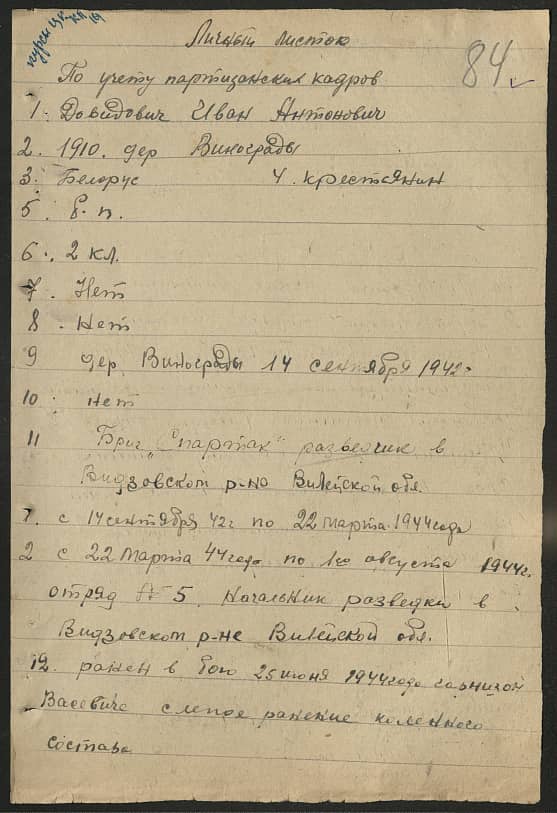 Личный листок
84
По учету партизанских кадров
1. Довидович Иван Антонович
2. 1910. дер Винограды
3. Белорус 4. крестьянин
5. б. п.
6. 2 кл.
7. Нет
8. Нет
9 дер. Винограды 14 сентября 1942г
10. нет
11 Бриг „Спартак“ разведчик в
Видзовском р-но Вилейской обл.
1. с 14 сентября 42г по 22 марта 1944 года
2 с 22 марта 44 года по 1го августа 1944г.
отряд № 5 Начальник разведки в
Видзовском р-не Вилейской обл.
12. ранен в бою 25 июня 1944 года
Васевиче слепое ранение коленного
состава